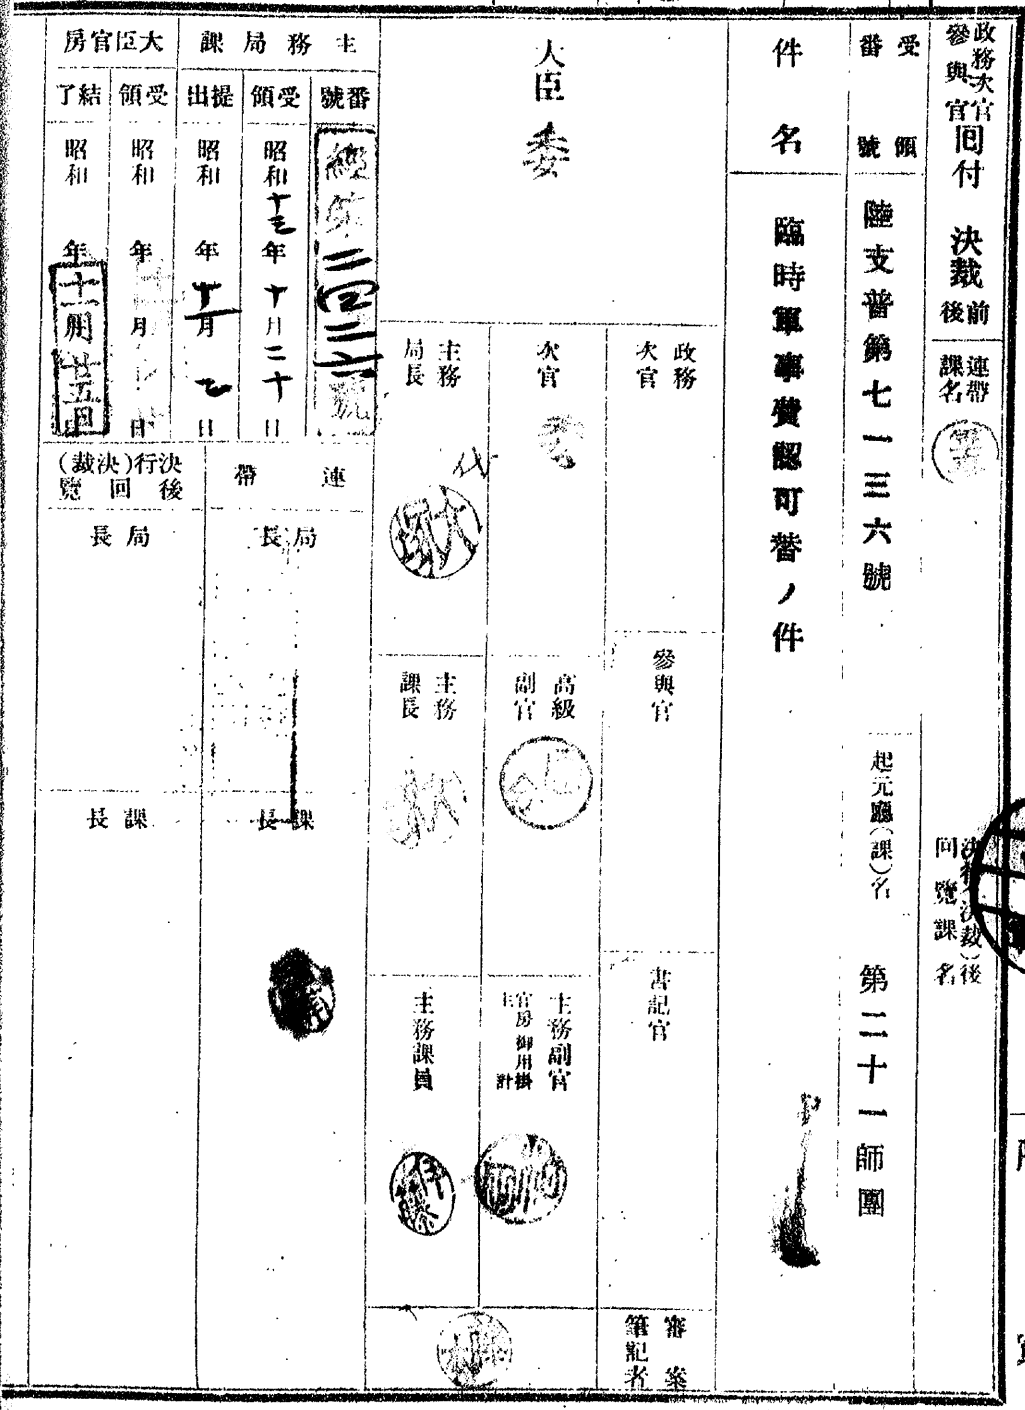 政務次官
參與官
回付
決裁
前
後
連帶
課名
決行(決裁)後
回覽課名
受領
番號
陸支普第七一三六號
起元廳(課)名
第二十一師團
件名
臨時軍事費認可替ノ件
大臣
委
政務
次官
參與官
書記官
審案
筆記者
次官
委
高級
副官
主務副官
官房御用掛
主計
主務
局長
代
主務
課長
主務課員
伊藤
主務局課
番號
經第二四二六號
受領
昭和十三年十月二十日
提出
昭和 年十一月 日
大臣官房
受領
昭和 年 月 日
結了
昭和 年十一月廿五日
連帶
局長
課長
決行(決裁)
後回覽
局長
課長